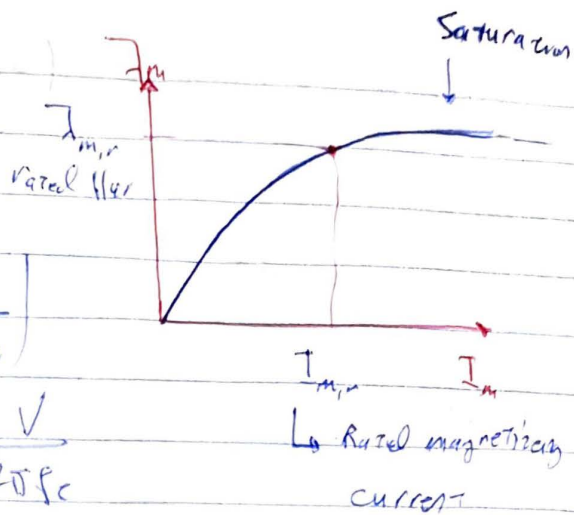 Saturation
λm
λm,r
rated flux
Im,r Im
V
↳ Rated magnetizing
current